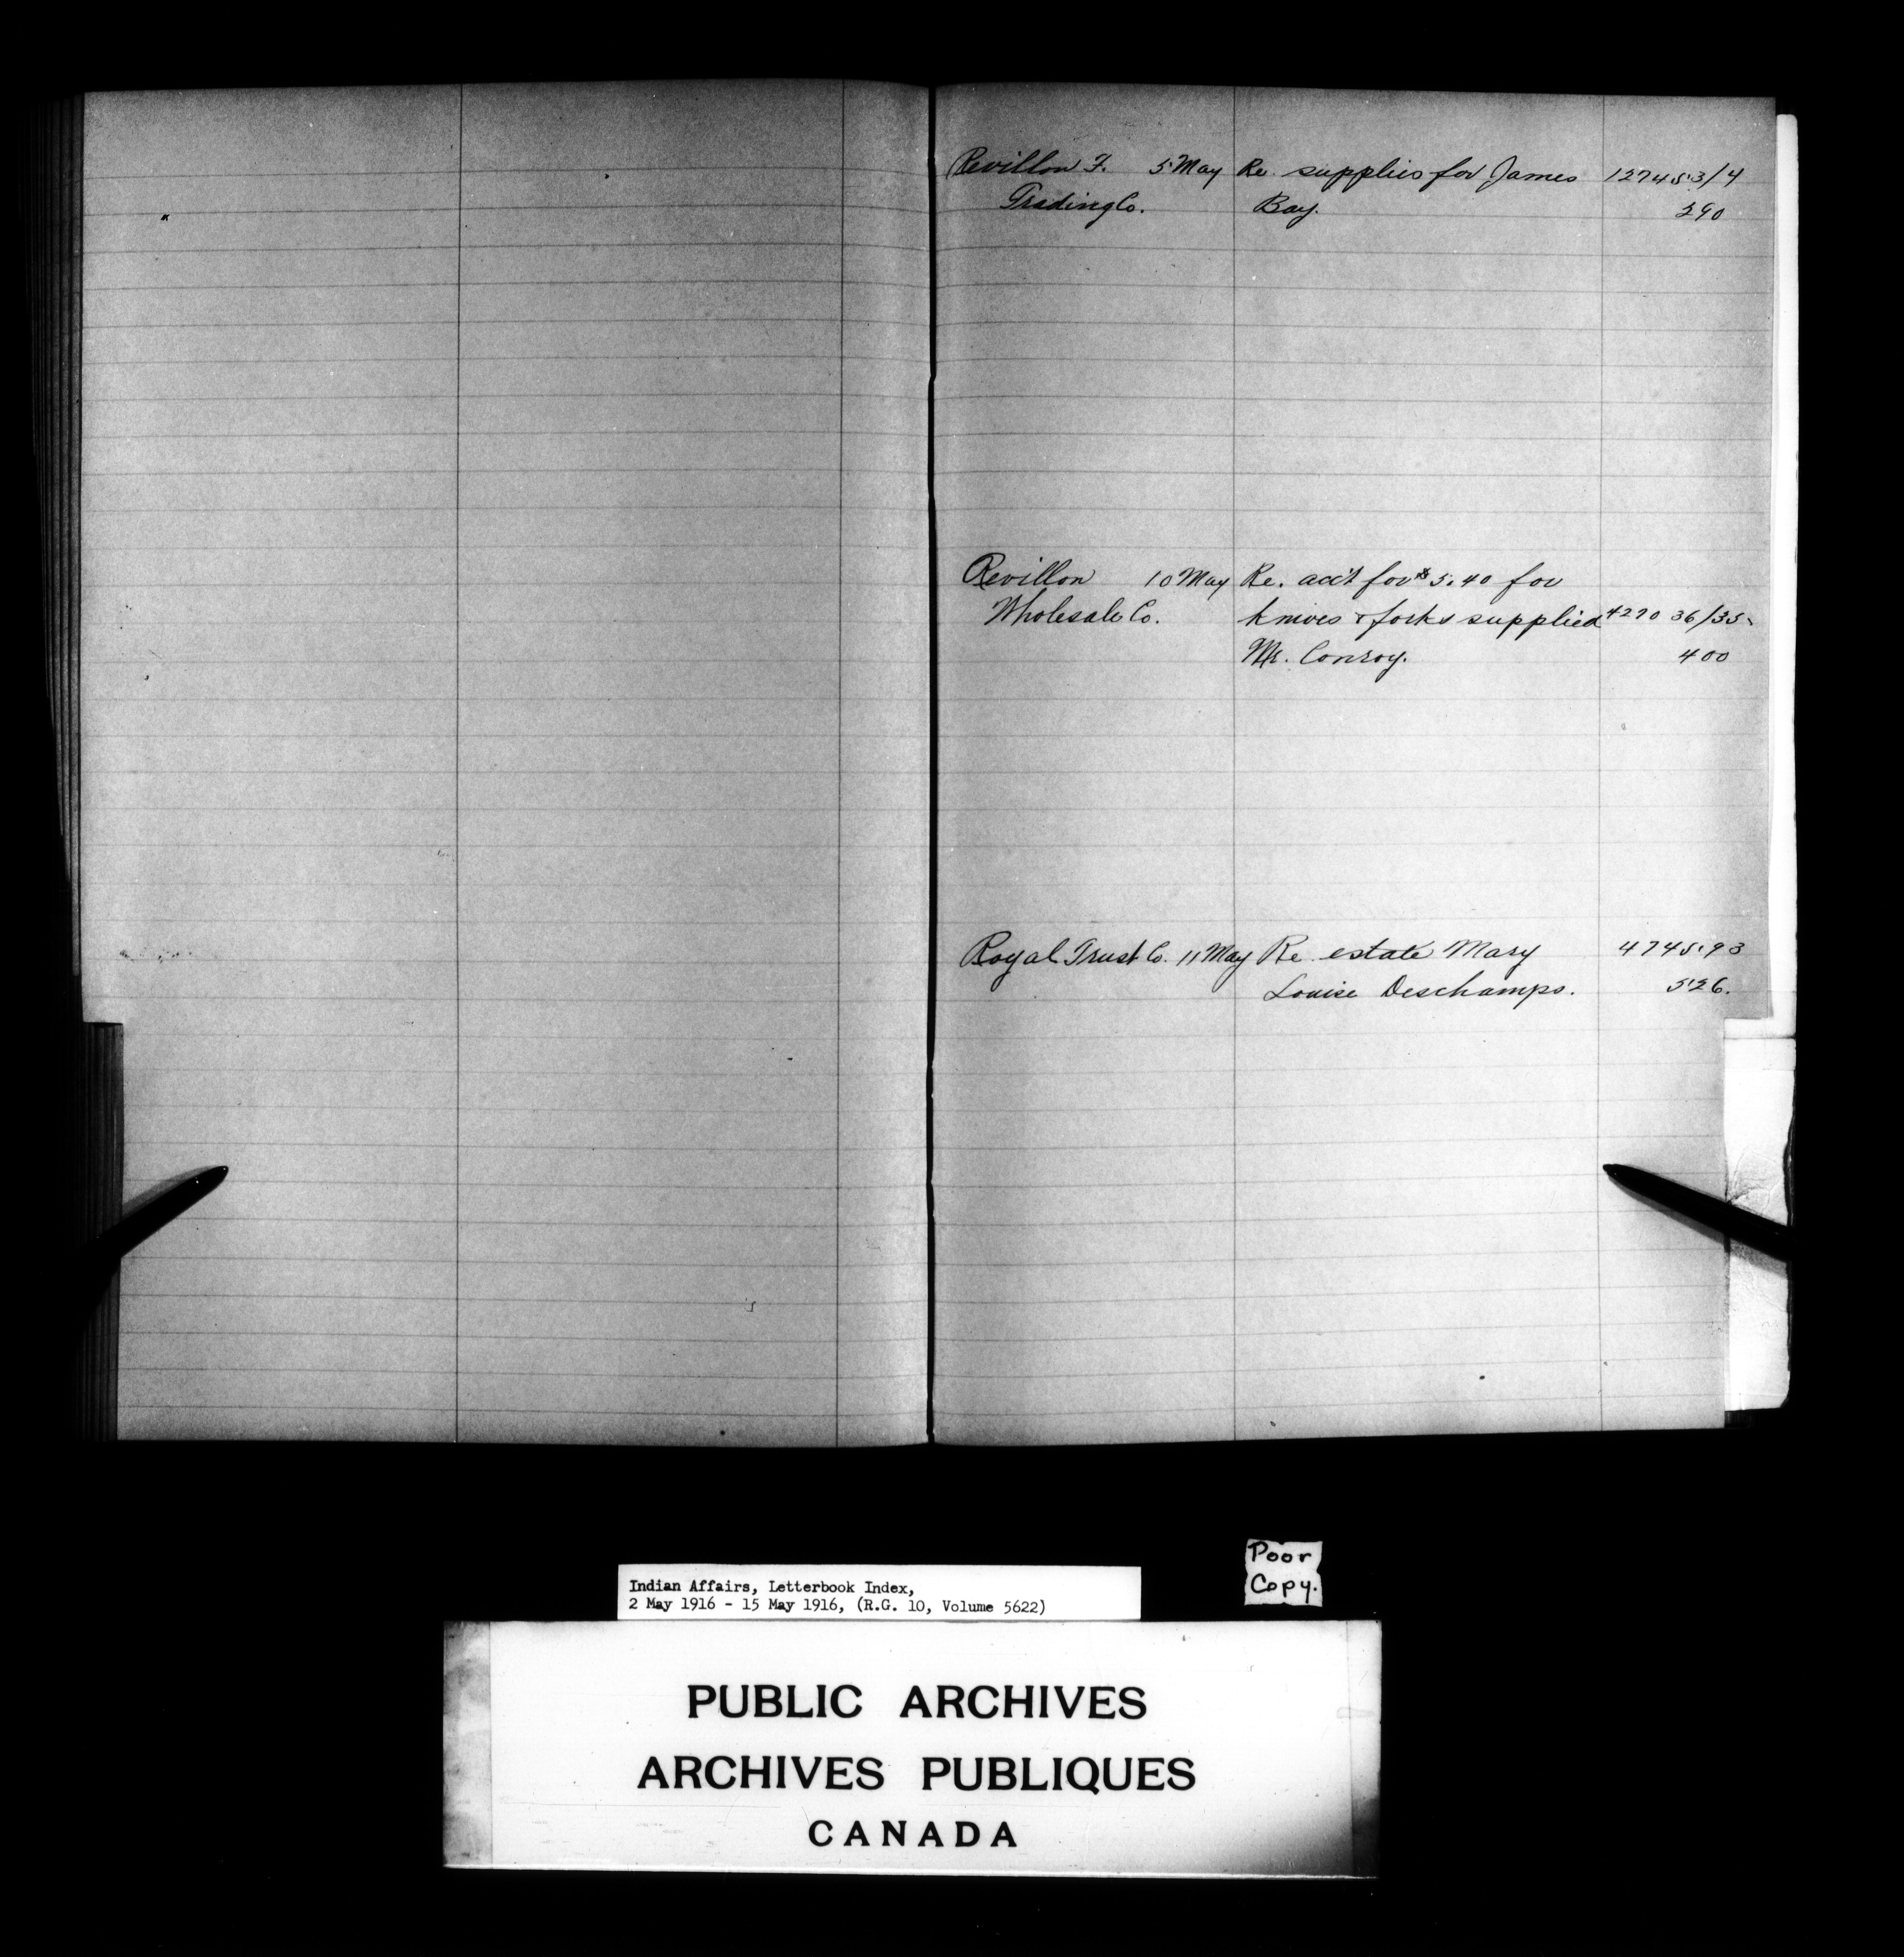 Revillon F. 5 May Re. supplies for James 127453/4
Trading Co. Bay. 290
Revillon 10 May Re. acc't for $5.40 for
Wholesale Co. knives & forks supplied 427036/35
Mr. Conroy. 400
Royal Trust Co. 11 May Re estate Mary 474593
Louise Deschamps. 526.
Poor
Copy.
Indian Affairs, Letterbook Index,
2 May 1916 - 15 May 1916, (R.G. 10, Volume 5622)
PUBLIC ARCHIVES
ARCHIVES PUBLIQUES
CANADA